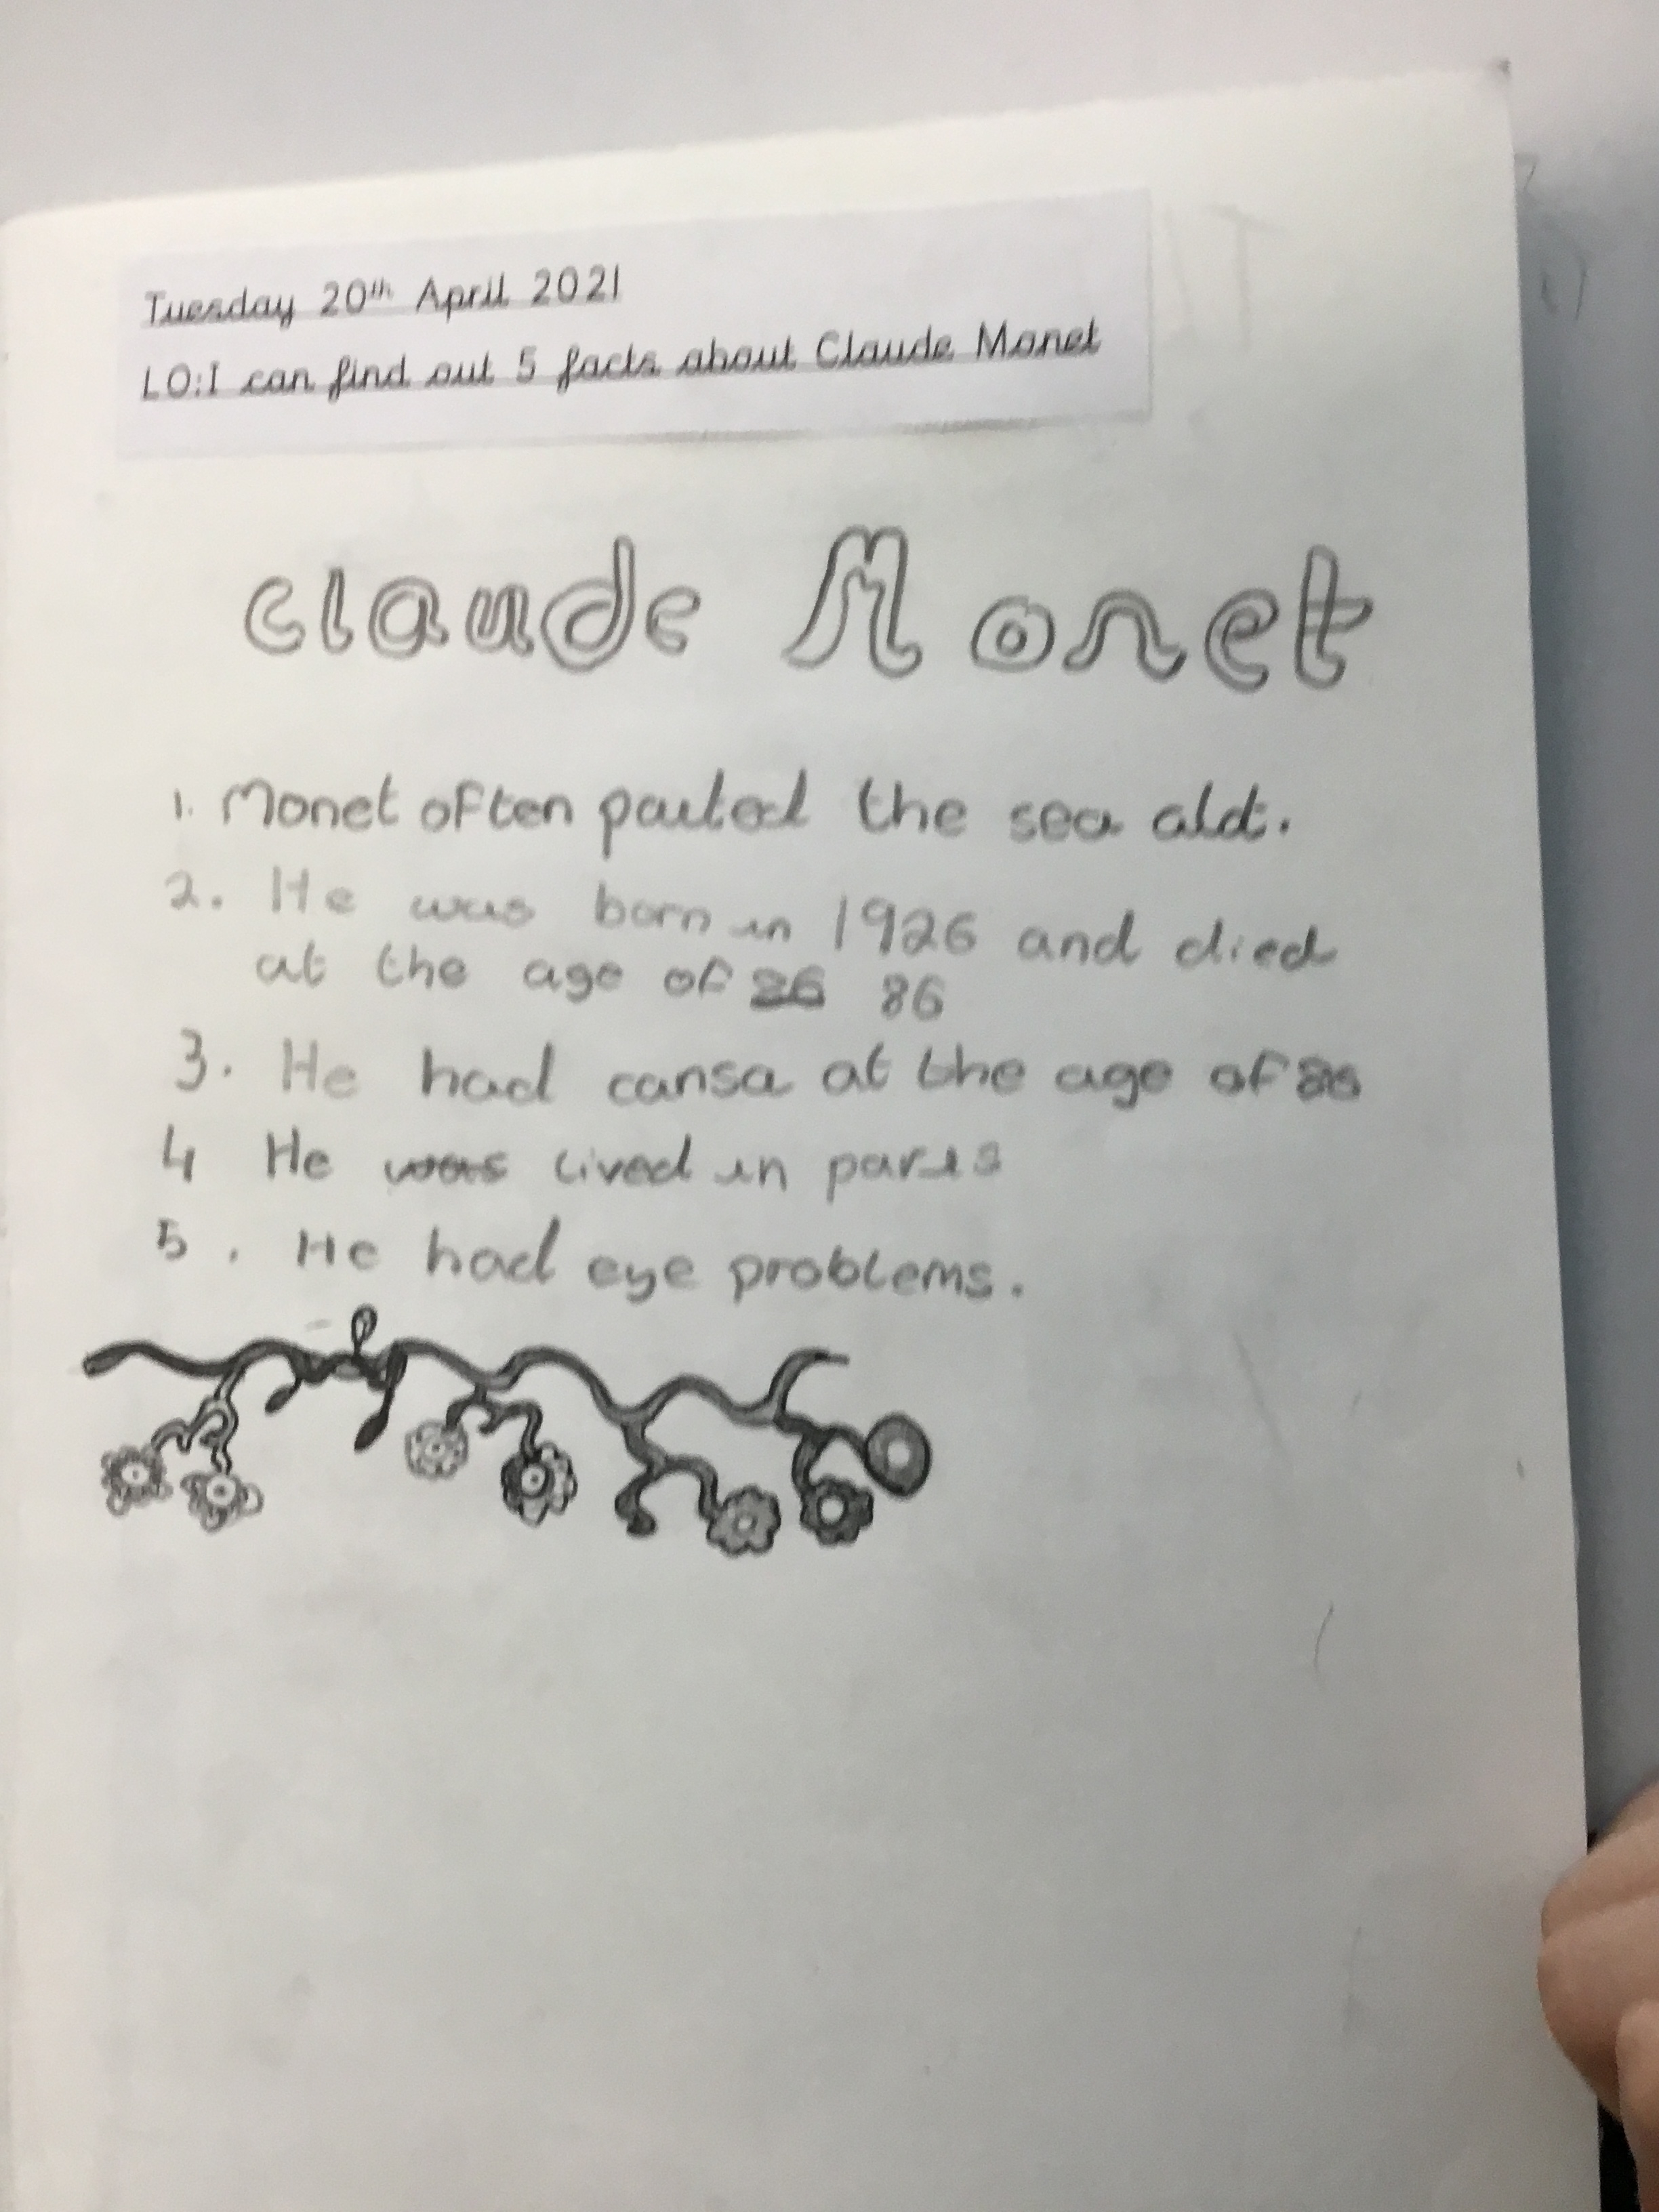 Tuesday 20th April 2021
LO:I can find out 5 facts about Claude Monet
Claude Monet
1. Monet often paited the sea alot.
2. He was born in 1926 and died
at the age of 26 86
3. He had cansa at the age of
4 He was lived in paris
5. He had eye problems.